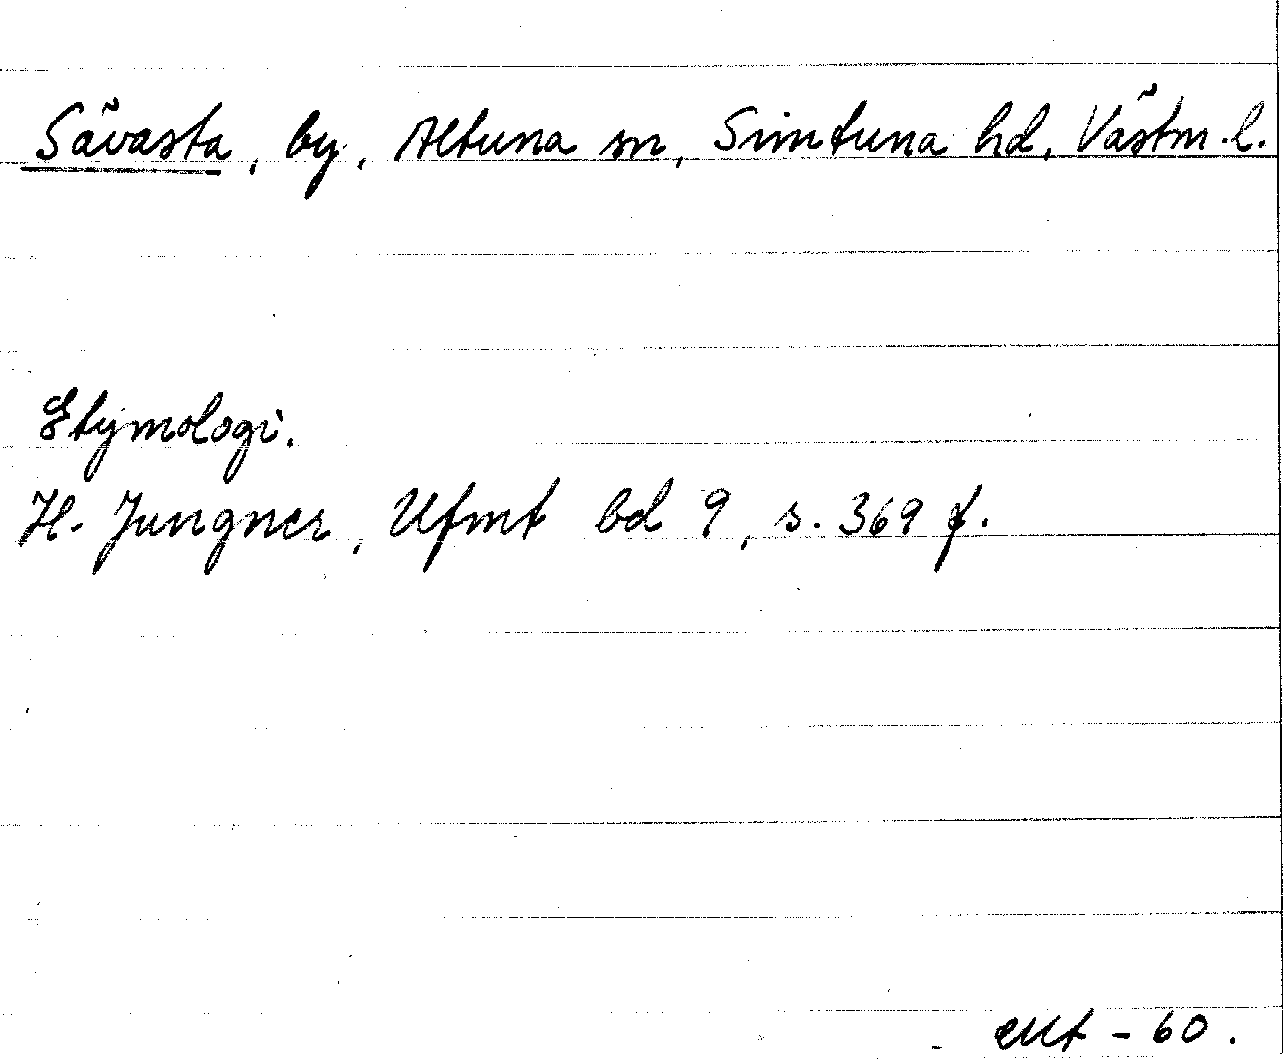 Sävasta, by, Altuna sn, Simtuna hd, Västm. l.
Etymologi.
H. Jungner, Ufmt bd 9, s. 369 f.
- 60.